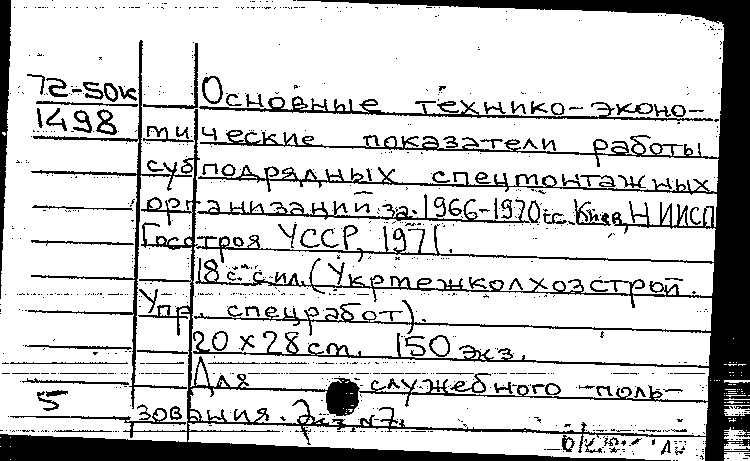 72-50к
1498
Основные технико-эконо-
мические показатели работы
субподрядных спецмонтажных
организаций за 1966-1970гг. Киев, НИИСП
Госстроя УССР, 1971.
18 с. с ил. (Укрмежколхозстрой.
Упр. спецработ).
20 x 28 cm. 150 экз.
Для служебного поль-
зования. Экз. №7.
5